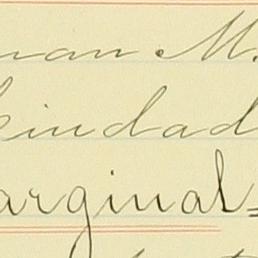 man M.
indad
arginal=